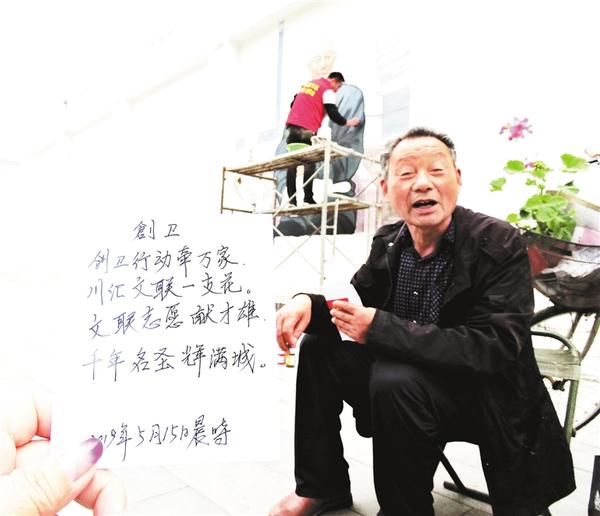 創卫
创卫行动牵万家.
川汇文联一支花。
文联志愿献才雄.
千年名圣辉满城。
2019年5月15日晨时